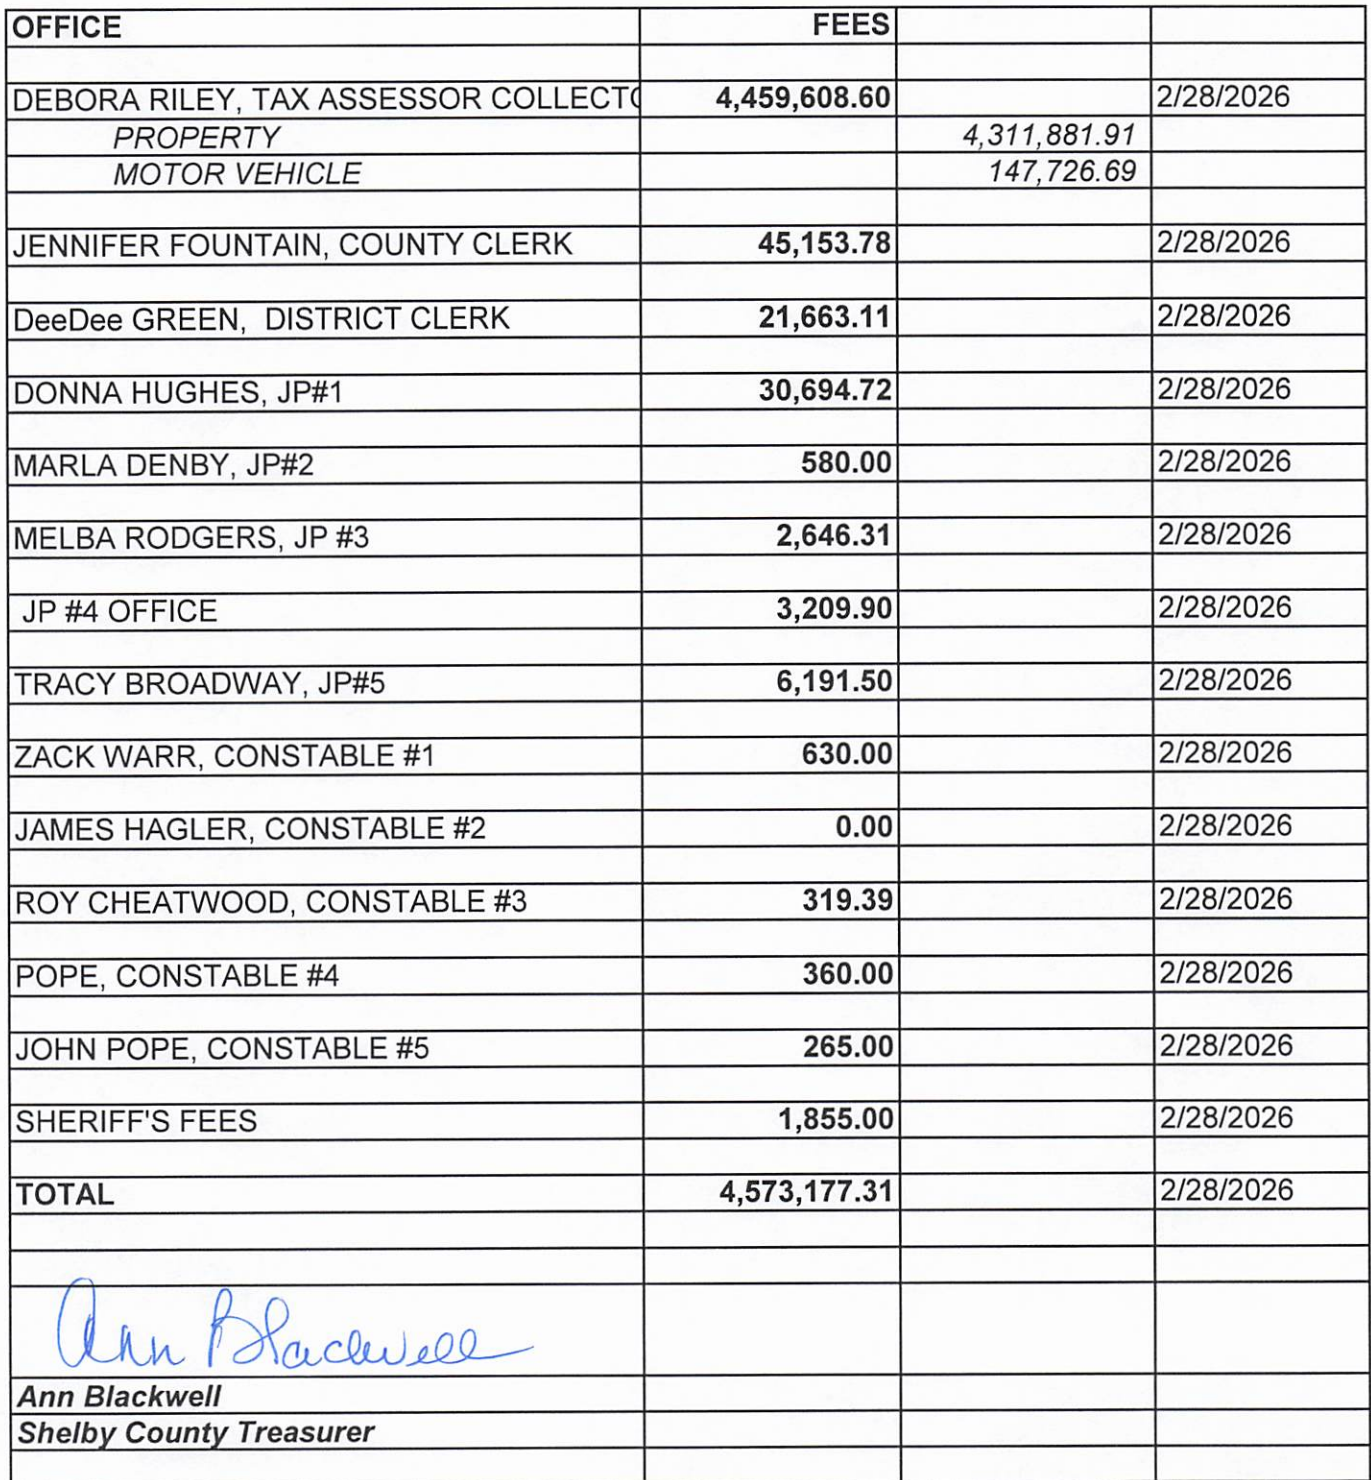 OFFICE FEES
DEBORA RILEY, TAX ASSESSOR COLLECTO 4,459,608.60 2/28/2026
PROPERTY 4,311,881.91
MOTOR VEHICLE 147,726.69
JENNIFER FOUNTAIN, COUNTY CLERK 45,153.78 2/28/2026
DeeDee GREEN, DISTRICT CLERK 21,663.11 2/28/2026
DONNA HUGHES, JP#1 30,694.72 2/28/2026
MARLA DENBY, JP#2 580.00 2/28/2026
MELBA RODGERS, JP #3 2,646.31 2/28/2026
JP #4 OFFICE 3,209.90 2/28/2026
TRACY BROADWAY, JP#5 6,191.50 2/28/2026
ZACK WARR, CONSTABLE #1 630.00 2/28/2026
JAMES HAGLER, CONSTABLE #2 0.00 2/28/2026
ROY CHEATWOOD, CONSTABLE #3 319.39 2/28/2026
POPE, CONSTABLE #4 360.00 2/28/2026
JOHN POPE, CONSTABLE #5 265.00 2/28/2026
SHERIFF'S FEES 1,855.00 2/28/2026
TOTAL 4,573,177.31 2/28/2026
Ann Blackwell
Ann Blackwell
Shelby County Treasurer